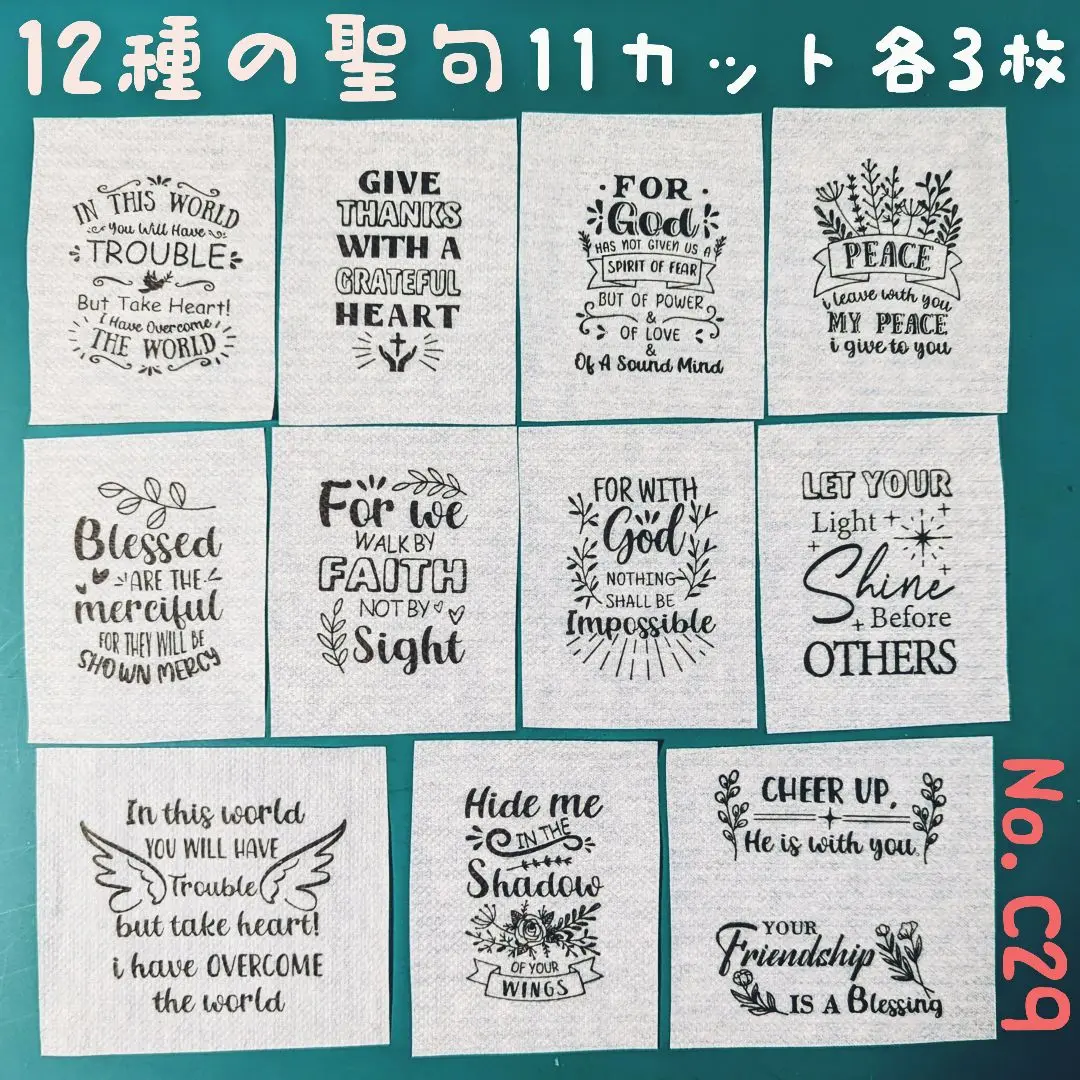 12種の聖句11カット各3枚
IN THIS WORLD
you Will Have
TROUBLE
But Take Heart!
I Have Overcome
THE WORLD
GIVE
THANKS
WITH A
GRATEFUL
HEART
FOR
God
HAS NOT GIVEN US A
SPIRIT OF FEAR
BUT OF POWER
&
OF LOVE
&
Of A Sound Mind
PEACE
i leave with you
MY PEACE
i give to you
Blessed
ARE THE
merciful
FOR THEY WILL BE
SHOWN MERCY
For we
WALK BY
FAITH
NOT BY
Sight
FOR WITH
God
NOTHING
SHALL BE
Impossible
LET YOUR
Light
Shine
Before
OTHERS
In this world
YOU WILL HAVE
Trouble
but take heart!
i have OVERCOME
the world
Hide me
IN THE
Shadow
OF YOUR
WINGS
CHEER UP,
He is with you.
YOUR
Friendship
IS A Blessing
No. C29